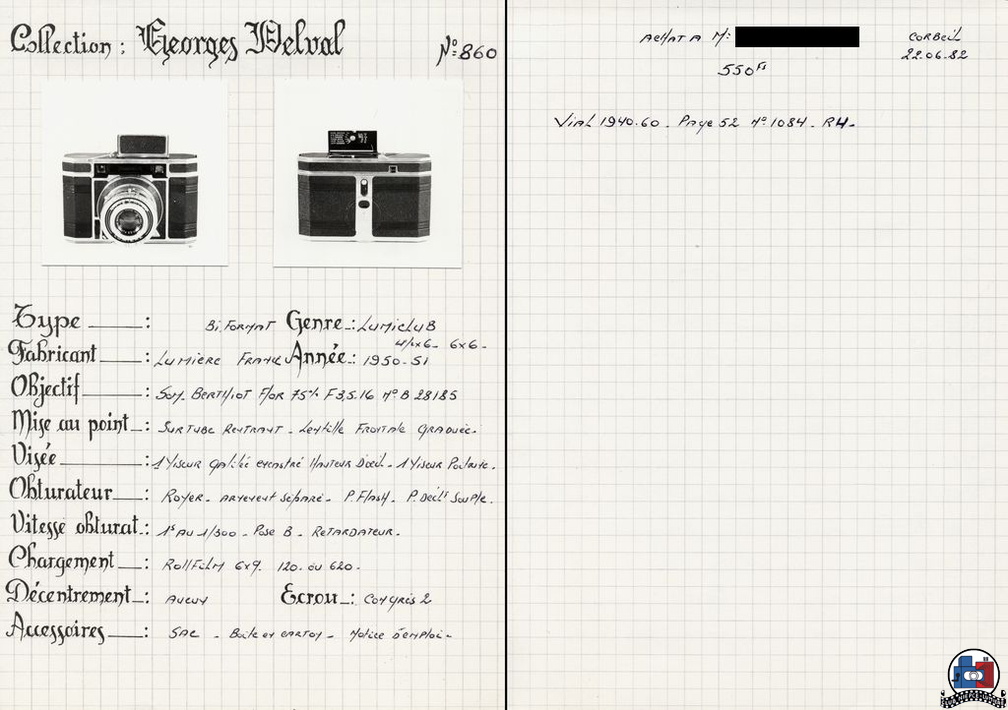 Collection : Georges Delval
N°: 860
Type : Bi. Format Genre : Lumiclub
4½x6 - 6x6 -
Fabricant : Lumiere France Année : 1950-51
Objectif : Som. Berthiot Flor 75% F3,5.16 N° B 28185
Mise au point : Sur tube Rentrant - Lentille Frontale Graduée.
Visée : 1 Viseur Galilée encastré Hauteur D'oeil - 1 Viseur Poitrine.
Obturateur : Royer - armement séparé - P. Flash - P. Déclt Souple.
Vitesse obturat. : 1s au 1/300 - Pose B - Retardateur.
Chargement : Roll Film 6x9. 120. ou 620.
Décentrement : Aucun Ecrou : Congrès 2
Accessoires : Sac - Boite en carton - Notice d'emploi -
Achat à Mr: Corbeil
550 Fs 22.06.82
Vial 1940.60. Page 52 N° 1084. R4-